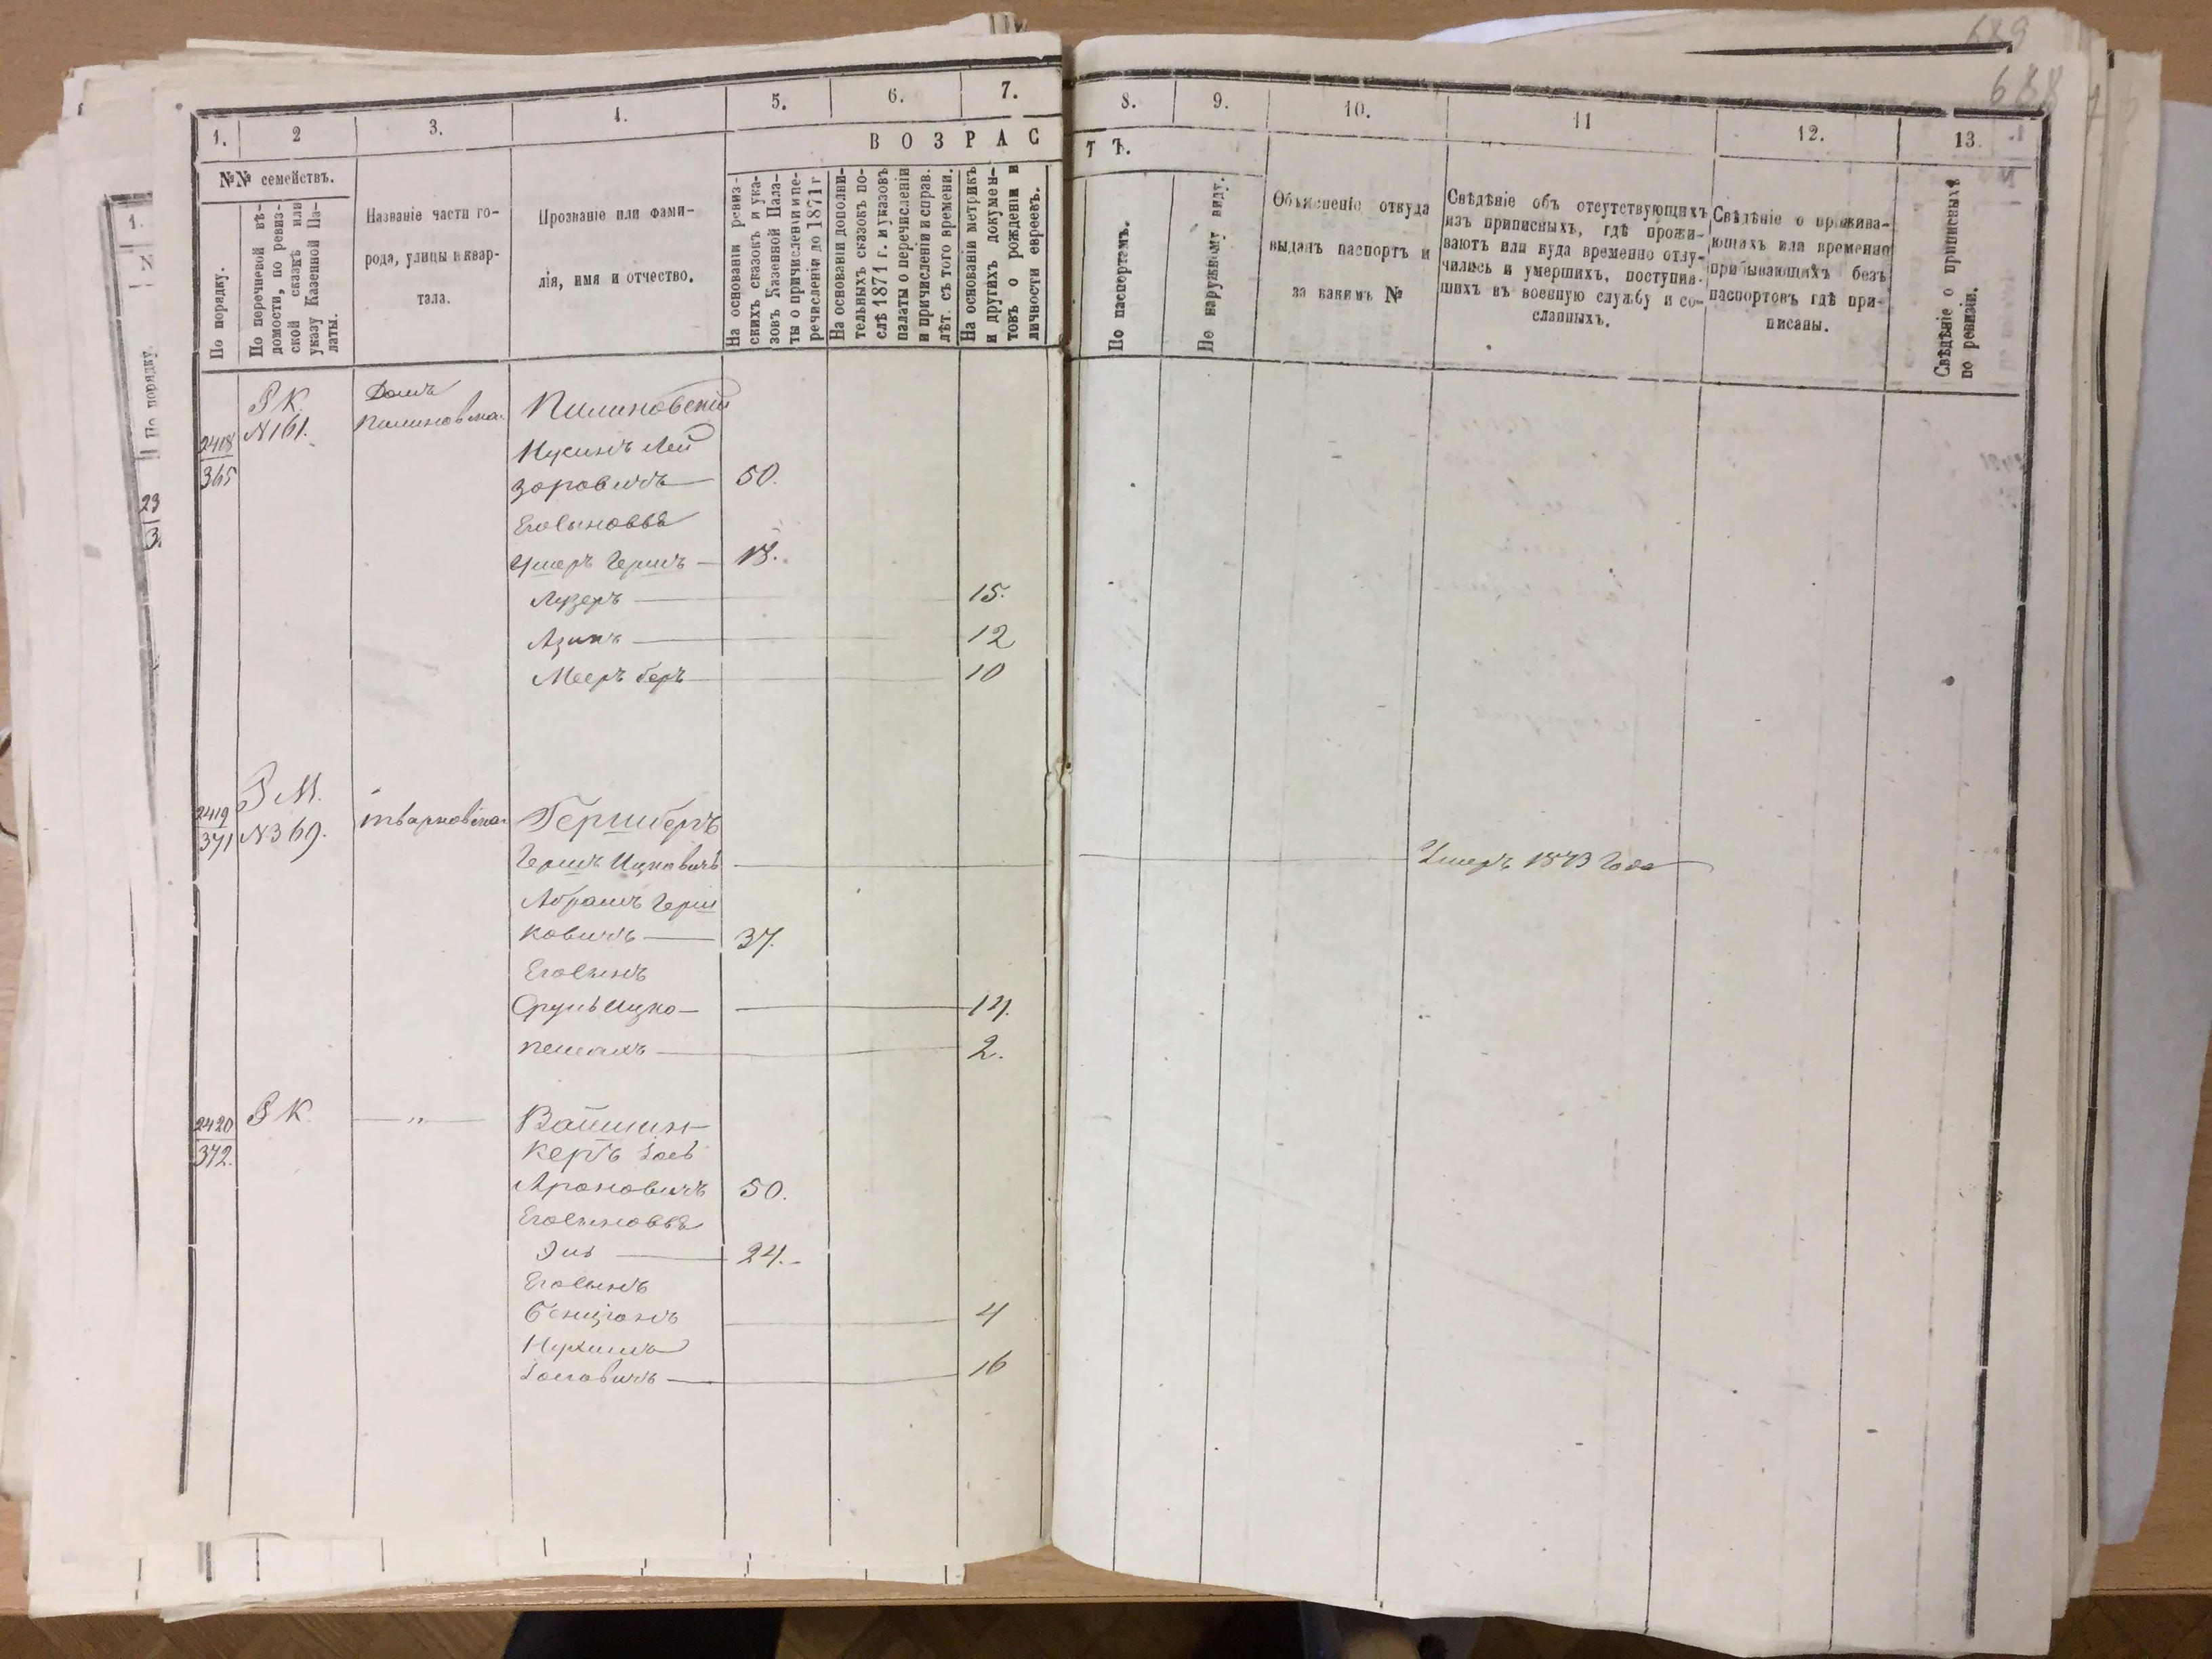 689
688
1.
2
3.
4.
5.
6.
7.
8.
9.
10.
11
12.
13.
ВОЗРАС
ТЪ.
№№ семействъ.
По порядку.
По перечневой вѣ-
домости, по ревиз-
ской сказкѣ или
указу Казенной Па-
латы.
Названіе части го-
рода, улицы и квар-
тала.
Прозваніе или фами-
лія, имя и отчество.
На основаніи ревиз-
скихъ сказокъ и ука-
зовъ Казенной Пала-
ты о причисленіи и пе-
речисленіи до 1871 г
На основаніи дополни-
тельныхъ сказокъ по-
слѣ 1871 г. и указовъ
палаты о перечисленіи
и причисленіи и справ.
лѣт. съ того времени.
На основаніи метрикъ
и другихъ докумен-
товъ о рожденіи и
личности евреевъ.
По паспортамъ.
По наружному виду.
Объясненіе откуда
выданъ паспортъ и
за какимъ №
Свѣдѣніе объ отсутствующихъ
изъ приписныхъ, гдѣ прожи-
ваютъ или куда временно отлу-
чились и умершихъ, поступив-
шихъ въ военную службу и со-
сланныхъ.
Свѣдѣніе о прожива-
ющихъ или временно
прибывающихъ безъ
паспортовъ гдѣ при-
писаны.
Свѣдѣніе о приписныхъ
по ревизіи.
1.
По порядку.
23
3
2418
365
Р К.
N 161.
Домъ
Пилиновска.
Пилиновскій
Нусинъ Лей
зоровичъ 50.
Его сыновья
Ушеръ Гершъ 18.
Лузеръ 15.
Азикъ 12
Меер Беръ 10
2419
371
Р М.
N 369.
Тварковска
Гершберъ
Гершъ Ицковичъ Умеръ 1873 года
Абрамъ Герш
ковичъ 37.
Его сынъ
Срульицко 14.
Пешахъ 2.
2420
372.
Р К. "
Вайшин-
керъ Іось
Ароновичъ 50.
Его сыновья
Эль 24.
Его сынъ
Бенціонъ 4
Нухимъ
Іосіовичъ 16